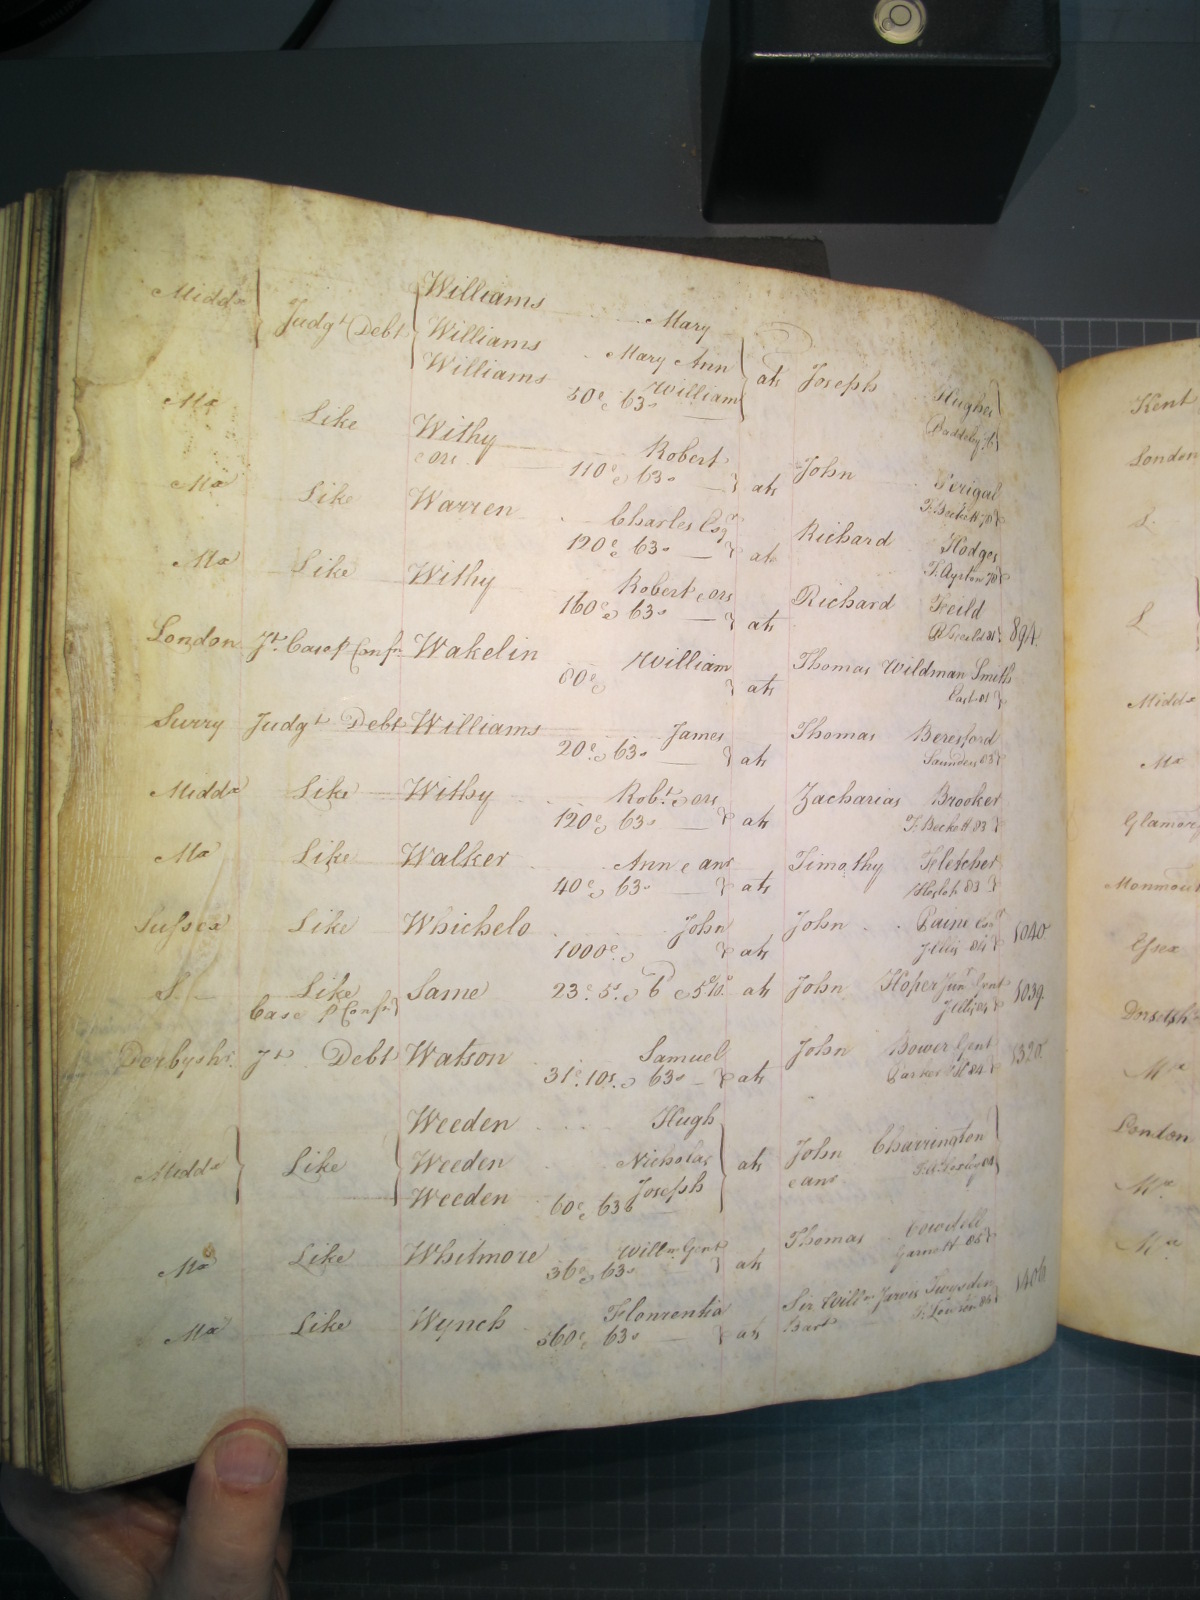 Middx Judgt Debt Williams Mary
Williams Mary Ann
Williams William 50£ & 63s ats Joseph Hughes
Mx Like Withy Robert
& ors 110£ & 63s ats John Perigal
T. Beckett 70
Mx Like Warren Charles Esqr
120£ & 63s ats Richard Hodges
T. Ayrton 70
Mx Like Withy Robert & ors
160£ & 63s ats Richard Feild
81 894
London Jt. Case p Confn Wakelin William
ats Thomas Wildman Smith
81
Surry Judgt Debt Williams James
20£ & 63s ats Thomas Beresford
Saunders 83
Middx Like Withy Robt. & ors
120£ & 63s ats Zacharias Brooker
T. Beckett 83
Mx Like Walker Ann & anr
40£ & 63s ats Timothy Fletcher
83
Sussex Like Whichelo John
1000£ & ats John Paine Esqr
J Ellis 84 1040
S. Like Same 23£. 5s. & 6 & 5 ats John Hoper Junr Gent
Case p Confn J Ellis 84 1039
Derbyshr. Jt Debt Watson Samuel
31£. 10s. & 63s ats John Bower Gent
Parker 84 1320
Weeden Hugh
Middx Like Weeden Nicholas ats John Charrington
Weeden Joseph & anr
60£ & 63s
Mx Like Whitmore Willm Gent
36£ & 63s ats Thomas
Garnett 85
Mx Like Wynch Florrentia
360£ & 63s ats Sir Willm Jarvis Twysden
Bart T. Lowten 86 1406
Kent
London
S.
L
Middx
Mx
Glamorg
Monmout
Essex
Mx
London
Mx
Mx